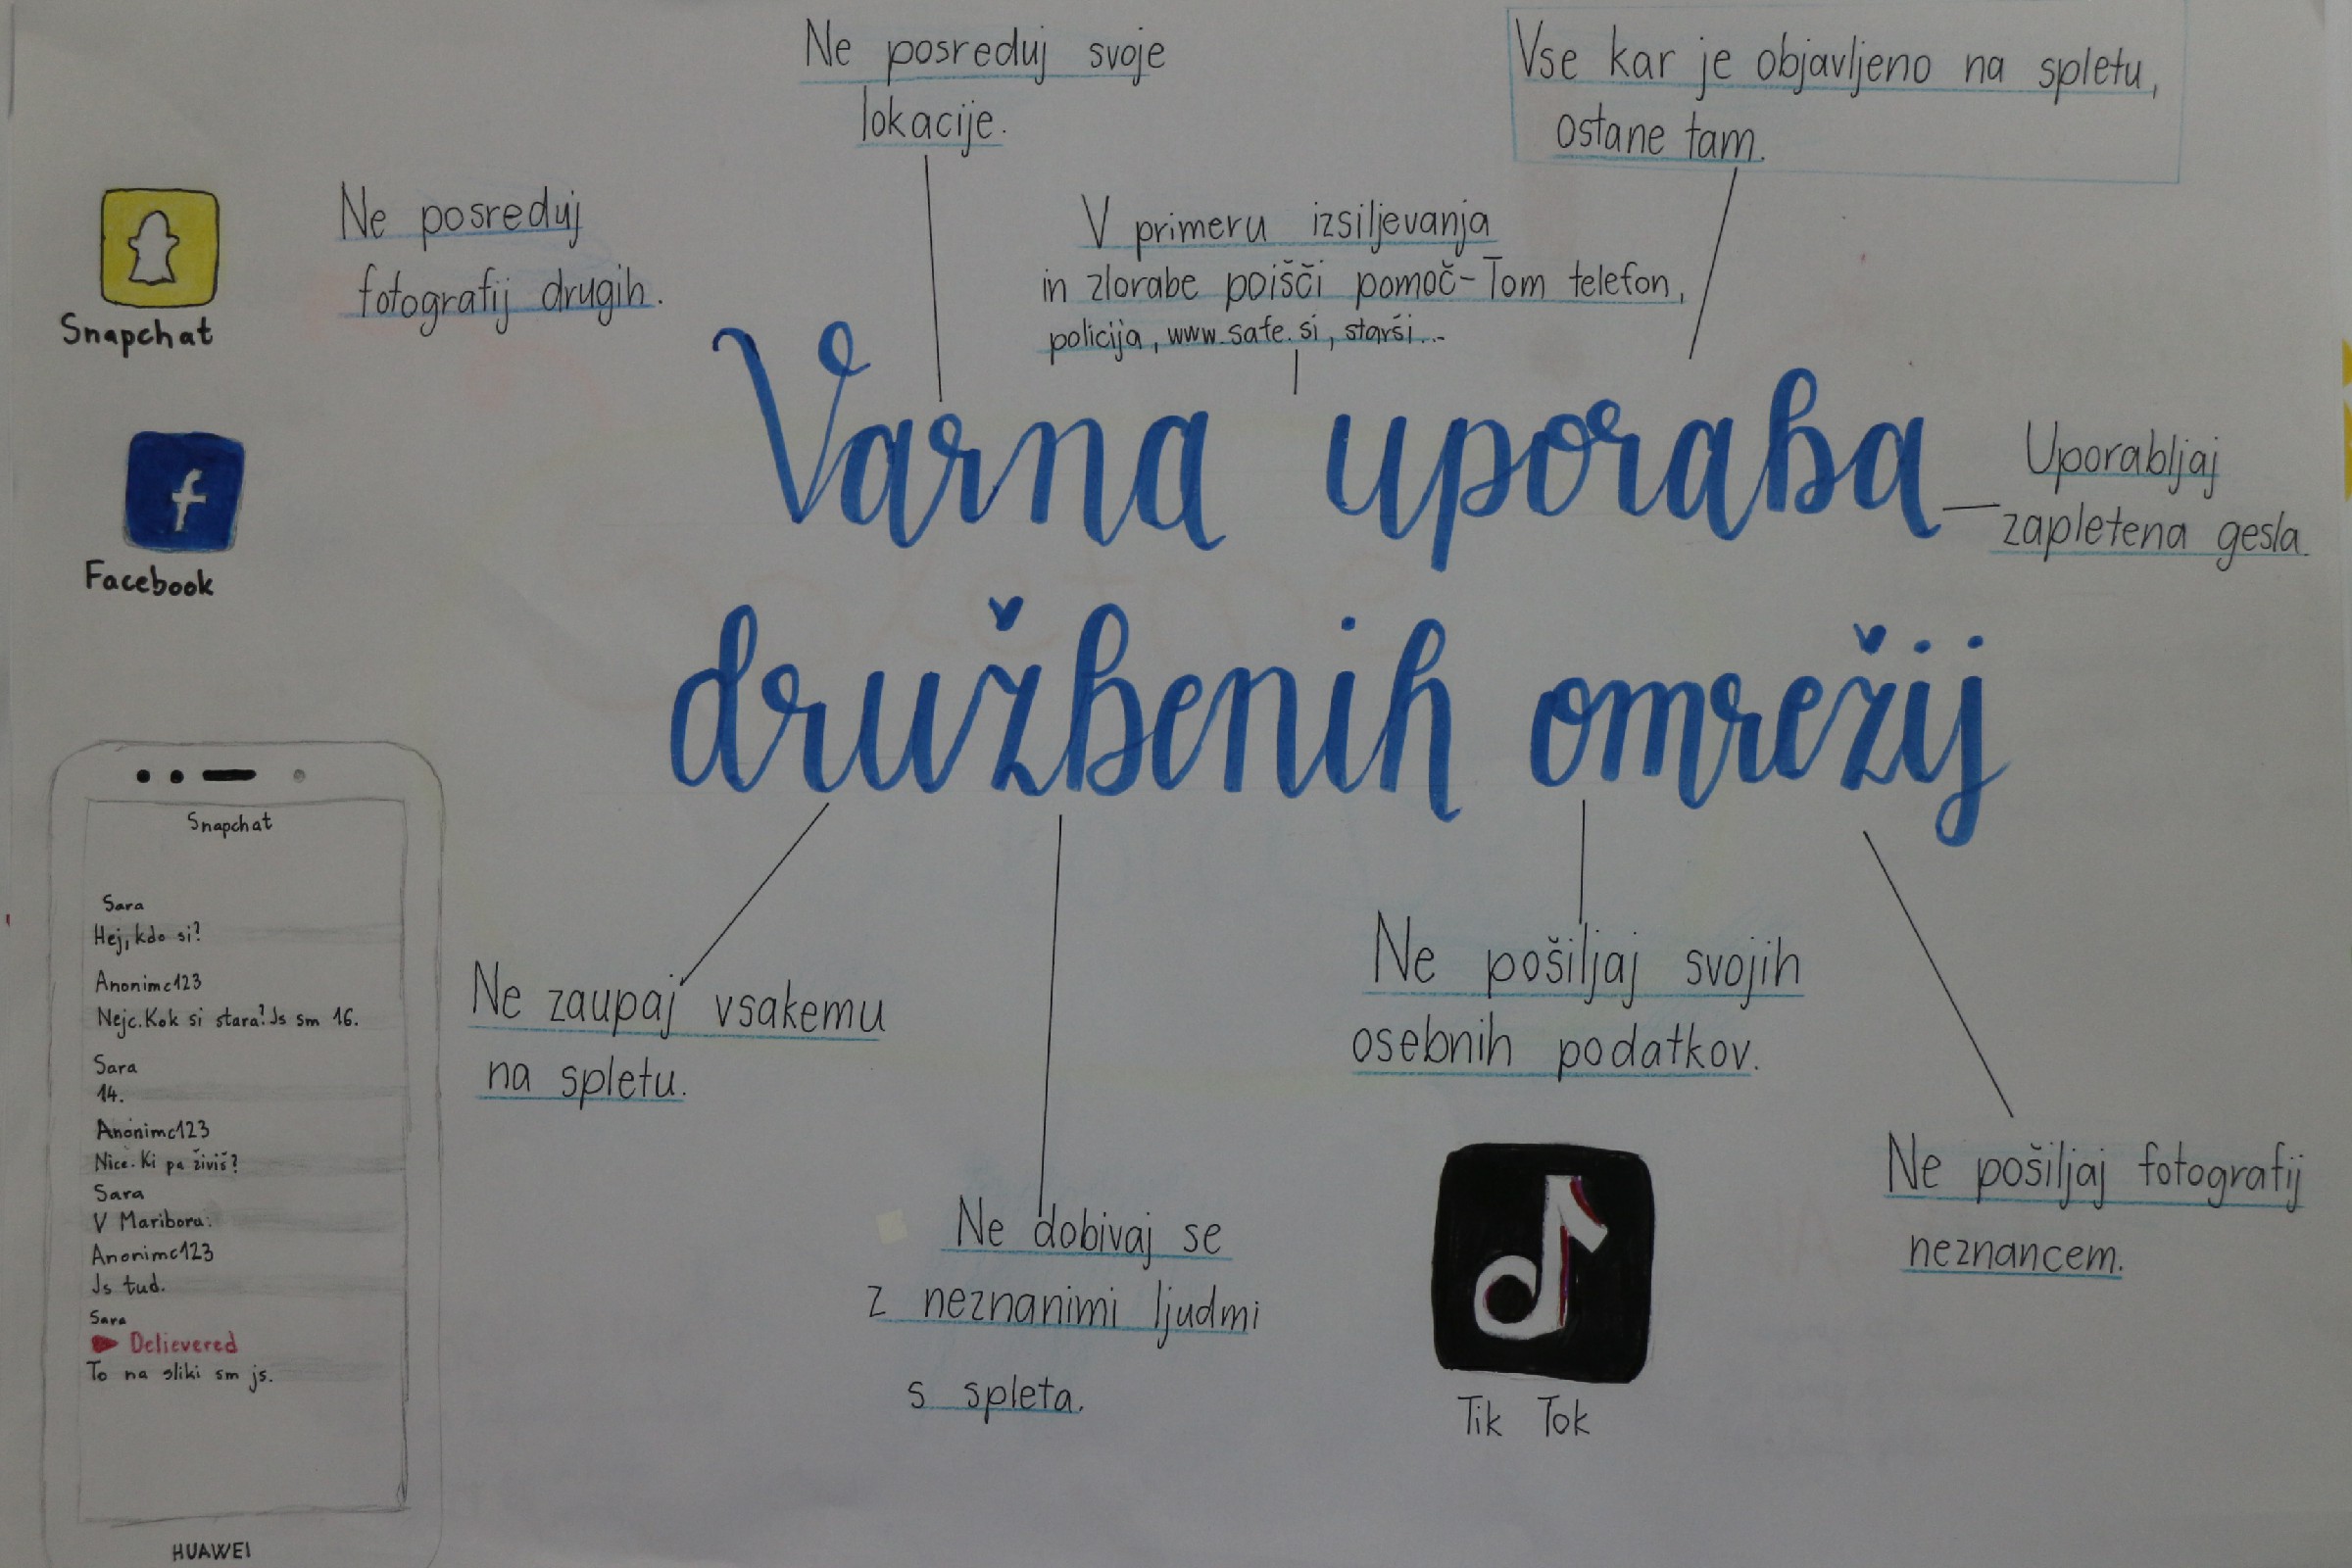 Ne posreduj svoje
lokacije.
Vse kar je objavljeno na spletu,
ostane tam.
Snapchat
Ne posreduj
fotografij drugih.
V primeru izsiljevanja
in zlorabe poišči pomoč - Tom telefon,
policija, www.safe.si, starši...
Facebook
Varna uporaba
družbenih omrežij
Uporabljaj
zapletena gesla.
Snapchat
Sara
Hej, kdo si?
Anonimc123
Nejc. Kok si stara? Js sm 16.
Sara
14.
Anonimc123
Nice. Ki pa živiš?
Sara
V Mariboru.
Anonimc123
Js tud.
Sara
Delievered
To na sliki sm js.
HUAWEI
Ne zaupaj vsakemu
na spletu.
Ne dobivaj se
z neznanimi ljudmi
s spleta.
Ne pošiljaj svojih
osebnih podatkov.
Tik Tok
Ne pošiljaj fotografij
neznancem.